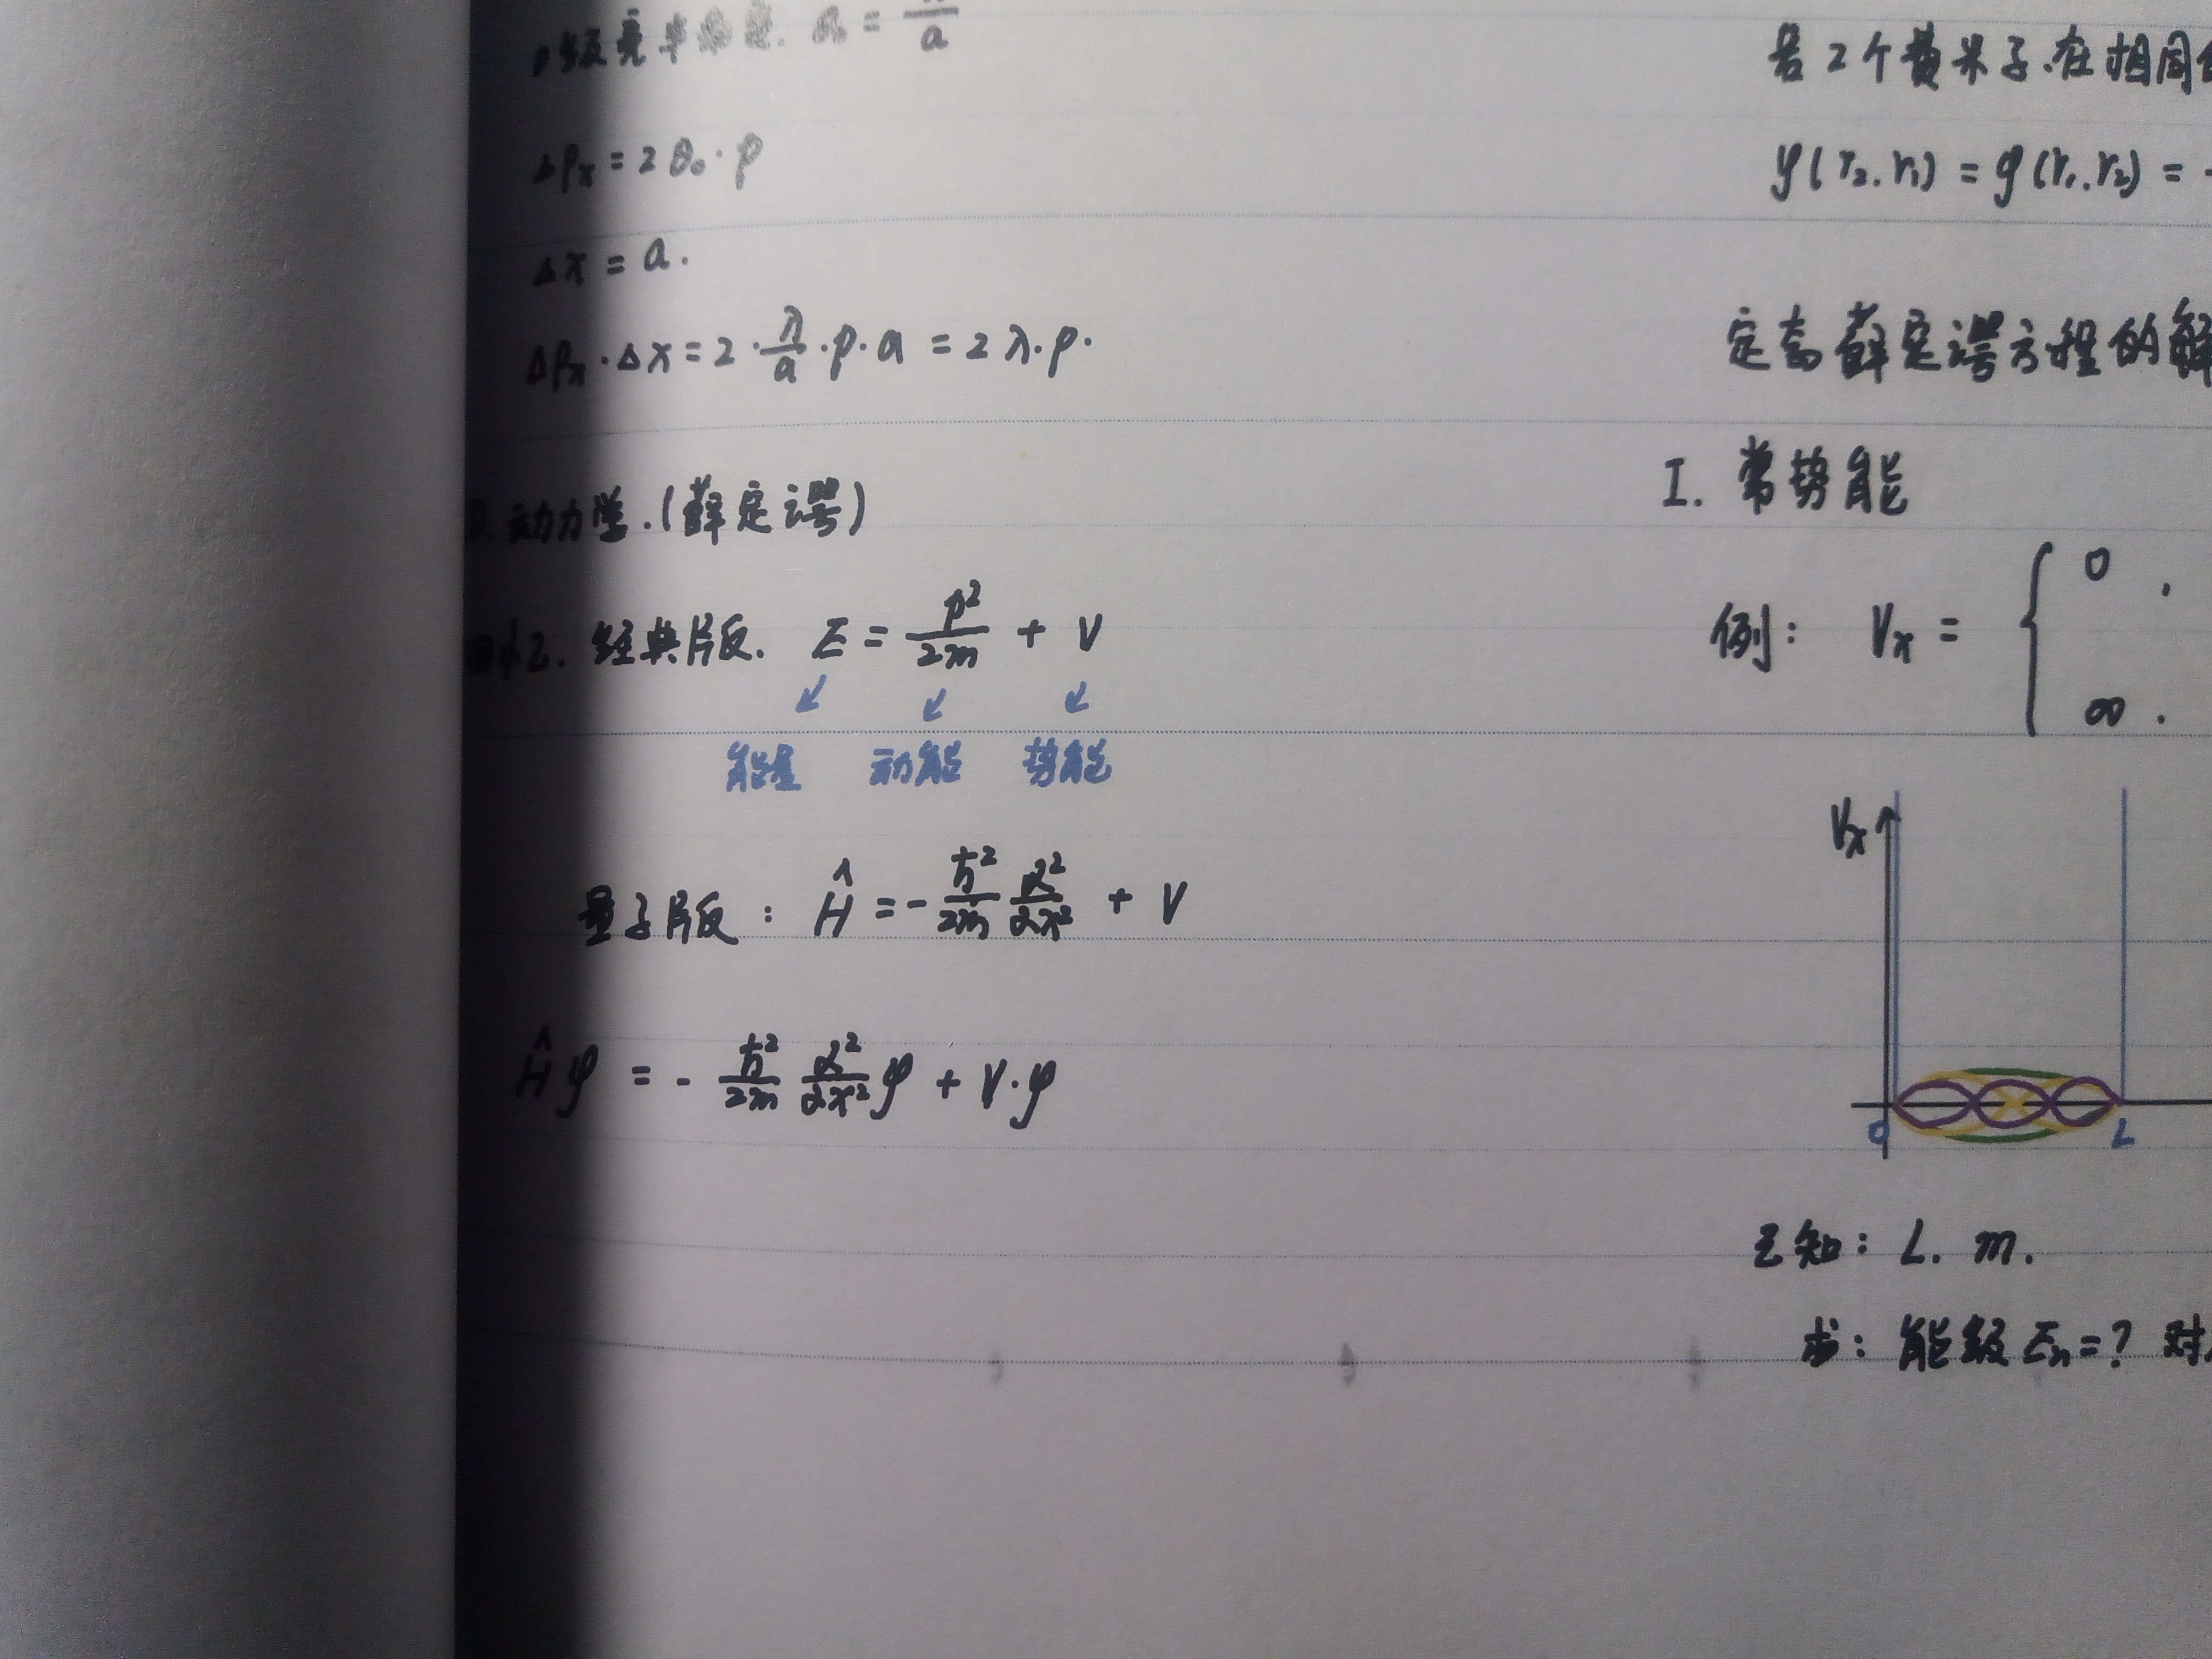 Δpx = 2θ₀·p
Δx = a.
Δpx·Δx = 2·λ/a·p·a = 2λ·p.
动力学.(薛定谔)
经典版. E = p²/2m + V
能量 动能 势能
量子版: Ĥ = -ħ²/2m ∂²/∂x² + V
Ĥφ = -ħ²/2m ∂²/∂x² φ + V·φ
若2个费米子.在相同
φ(r₂.r₁) = φ(r₁.r₂) =
定态薛定谔方程的解
I. 常势能
例: Vx = { 0 ,
∞ .
Vx
0 L
已知: L. m.
求: 能级 En=? 对